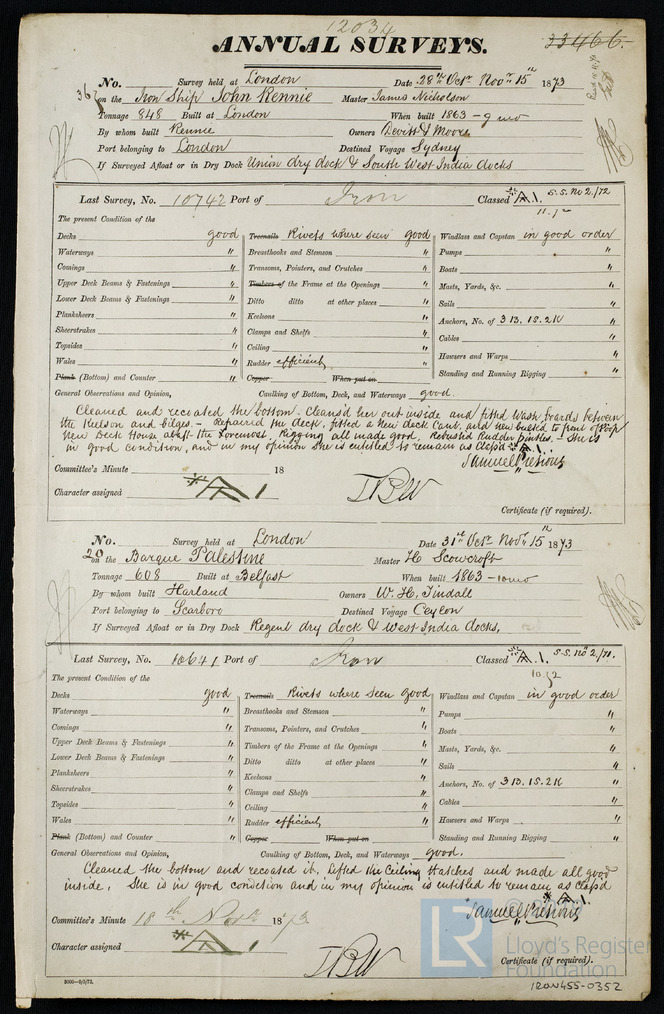 12034
ANNUAL SURVEYS.
33466.
No. Survey held at London Date 28th Octr. Novr. 15th 1873
367 on the Iron Ship John Rennie Master James Nicholson
Tonnage 848 Built at London When built 1863 - 9 mo
By whom built Rennie Owners Devitt & Moore
Port belonging to London Destined Voyage Sydney
If Surveyed Afloat or in Dry Dock Union dry dock & South West India docks
Last Survey, No. 10742 Port of Iron Classed A.1. S.S. No 2/72
11.72
The present Condition of the
Decks good Treenails Rivets where seen good Windlass and Capstan in good order
Waterways " Breasthooks and Stemson " Pumps "
Comings " Transoms, Pointers, and Crutches " Boats "
Upper Deck Beams & Fastenings " Timbers of the Frame at the Openings " Masts, Yards, &c. "
Lower Deck Beams & Fastenings " Ditto ditto at other places " Sails "
Planksheers " Keelsons " Anchors, No. of 3 B. 1S. 2K "
Sheerstrakes " Clamps and Shelfs " Cables "
Topsides " Ceiling " Hawsers and Warps "
Wales " Rudder efficient, Standing and Running Rigging "
Plank (Bottom) and Counter " Copper When put on
General Observations and Opinion, Caulking of Bottom, Deck, and Waterways good.
Cleaned and recoated the bottom. Cleans'd her out inside and fitted Wash boards between
the Kelson and bilges. - Repaired the deck, fitted a new deck and new to front of Poop
New Deck House abaft the Foremast. Rigging all made good. Rebushed Rudder pintles. - She is
in good condition, and in my opinion she is entitled to remain as Class'd
Samuel Pretious
Committee's Minute 18
Character assigned A 1
Certificate (if required).
No. Survey held at London Date 31st Octr. Novr. 15th 1873
20 on the Barque Palestine Master H. Scowcroft
Tonnage 608 Built at Belfast When built 1863 - 10 mo
By whom built Harland Owners W. H. Tindall
Port belonging to Scarboro Destined Voyage Ceylon
If Surveyed Afloat or in Dry Dock Regent dry dock & West India docks.
Last Survey, No. 10641 Port of Iron Classed A.1. S.S. No 2/71.
10.72
The present Condition of the
Decks good Treenails Rivets where seen good Windlass and Capstan in good order
Waterways " Breasthooks and Stemson " Pumps "
Comings " Transoms, Pointers, and Crutches " Boats "
Upper Deck Beams & Fastenings " Timbers of the Frame at the Openings " Masts, Yards, &c. "
Lower Deck Beams & Fastenings " Ditto ditto at other places " Sails "
Planksheers " Keelsons " Anchors, No. of 3 B. 1S. 2K "
Sheerstrakes " Clamps and Shelfs " Cables "
Topsides " Ceiling " Hawsers and Warps "
Wales " Rudder efficient, Standing and Running Rigging "
Plank (Bottom) and Counter " Copper When put on
General Observations and Opinion, Caulking of Bottom, Deck, and Waterways good.
Cleaned the bottom and recoated it, lifted the Ceiling Hatches and made all good
inside. She is in good condition and in my opinion is entitled to remain as Class'd
Samuel Pretious
Committee's Minute 18th Novr 1873
Character assigned A 1
Certificate (if required).
LR
Lloyd's Register
Foundation
IRON455-0352